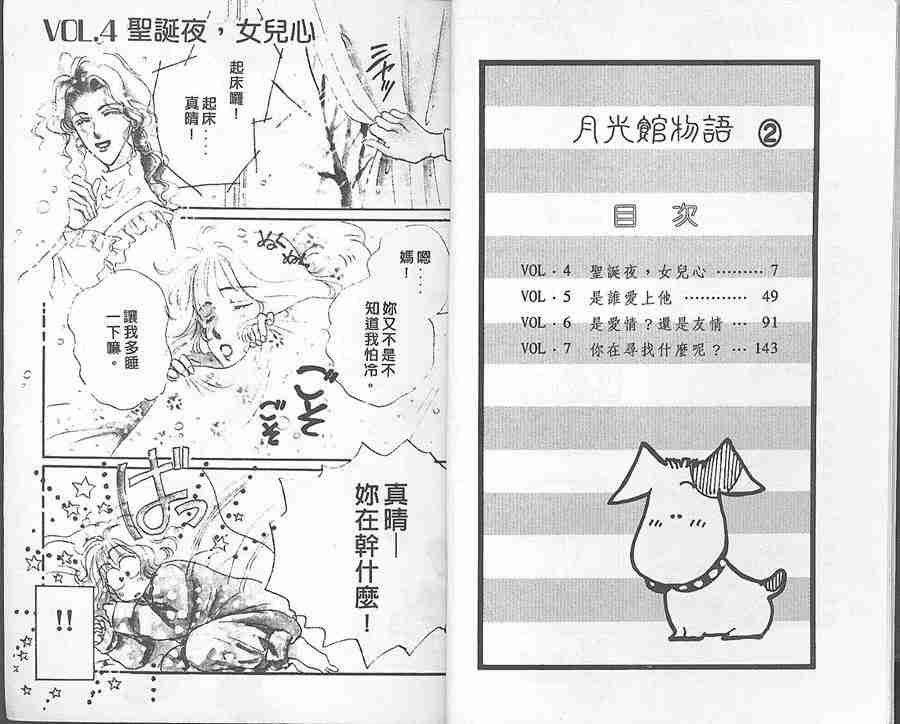 月光館物語 ②
目 次
VOL・4 聖誕夜，女兒心 ……… 7
VOL・5 是誰愛上他 ………… 49
VOL・6 是愛情？還是友情 … 91
VOL・7 你在尋找什麼呢？ … 143
VOL.4 聖誕夜，女兒心
起床囉！
起床……
真晴！
嗯……
媽！
妳又不是不
知道我怕冷。
讓我多睡
一下嘛。
ぬぬ
もぞ
もぞ
ばっ
真晴—
妳在幹什麼！
!!